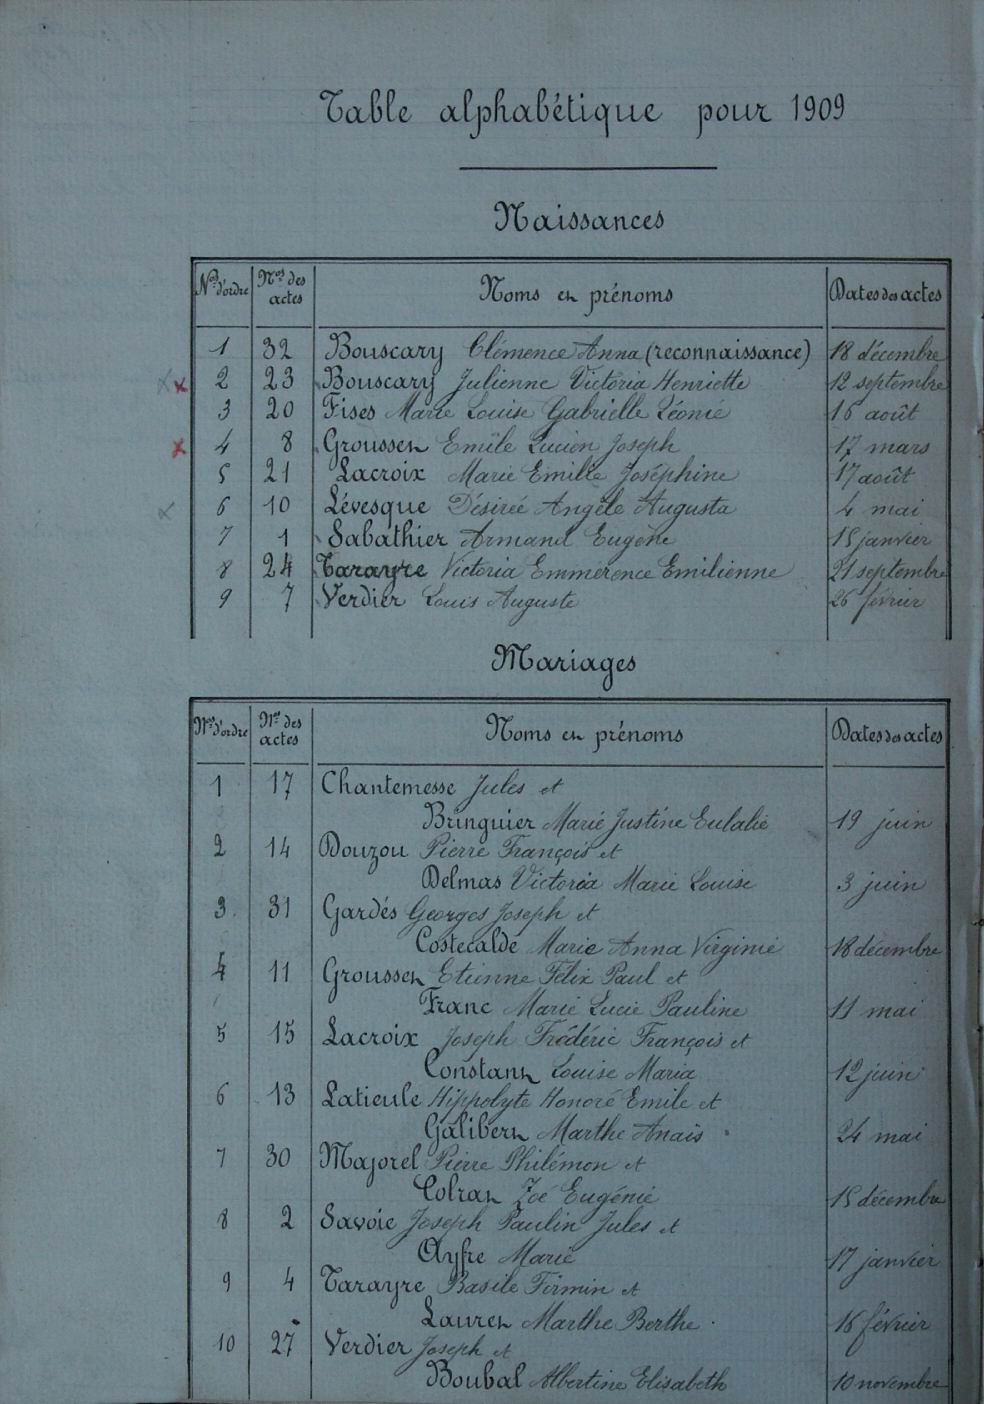 Table alphabétique pour 1909
Naissances
Nos d'ordre Nos des actes Noms et prénoms Dates des actes
1 32 Bouscary Clémence Anna (reconnaissance) 18 décembre
2 23 Bouscary Julienne Victoria Henriette 12 septembre
3 20 Fises Marie Louise Gabrielle Léonie 16 août
4 8 Grousset Emile Lucien Joseph 17 mars
5 21 Lacroix Marie Emilie Joséphine 17 août
6 10 Lévesque Désirée Angèle Augusta 4 mai
7 1 Sabathier Armand Eugène 15 janvier
8 24 Tarayre Victoria Emmérence Emilienne 21 septembre
9 7 Verdier Louis Auguste 26 février
Mariages
Nos d'ordre Nos des actes Noms et prénoms Dates des actes
1 17 Chantemesse Jules et
Bringuier Marie Justine Eulalie 19 juin
2 14 Douzou Pierre François et
Delmas Victoria Marie Louise 3 juin
3 31 Gardés Georges Joseph et
Costecalde Marie Anna Virginie 18 décembre
4 11 Grousset Etienne Félix Paul et
Franc Marie Lucie Pauline 11 mai
5 15 Lacroix Joseph Frédéric François et
Constant Louise Maria 12 juin
6 13 Latieule Hippolyte Honoré Emile et
Galibert Marthe Anais 24 mai
7 30 Majorel Pierre Philémon et
Colrat Zoé Eugénie 15 décembre
8 2 Savoie Joseph Paulin Jules et
Ayfre Marie 17 janvier
9 4 Tarayre Basile Firmin et
Lauret Marthe Berthe 16 février
10 27 Verdier Joseph et
Boubal Albertine Elisabeth 10 novembre